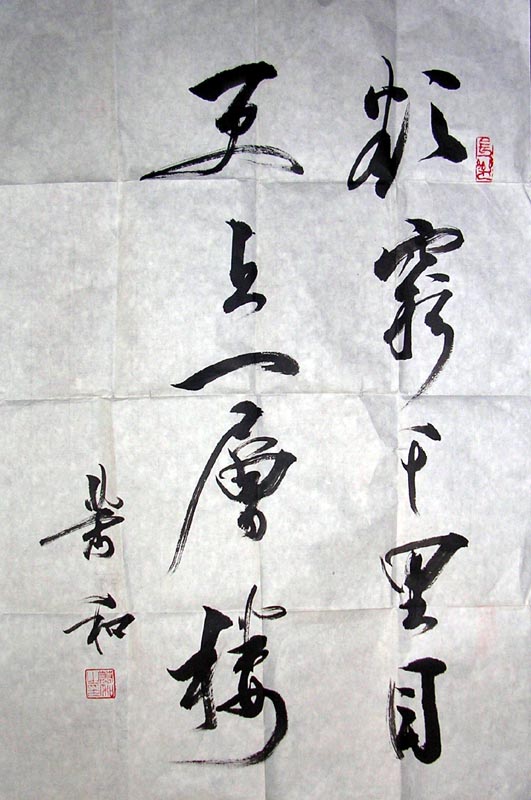 欲窮千里目
更上一層樓
和